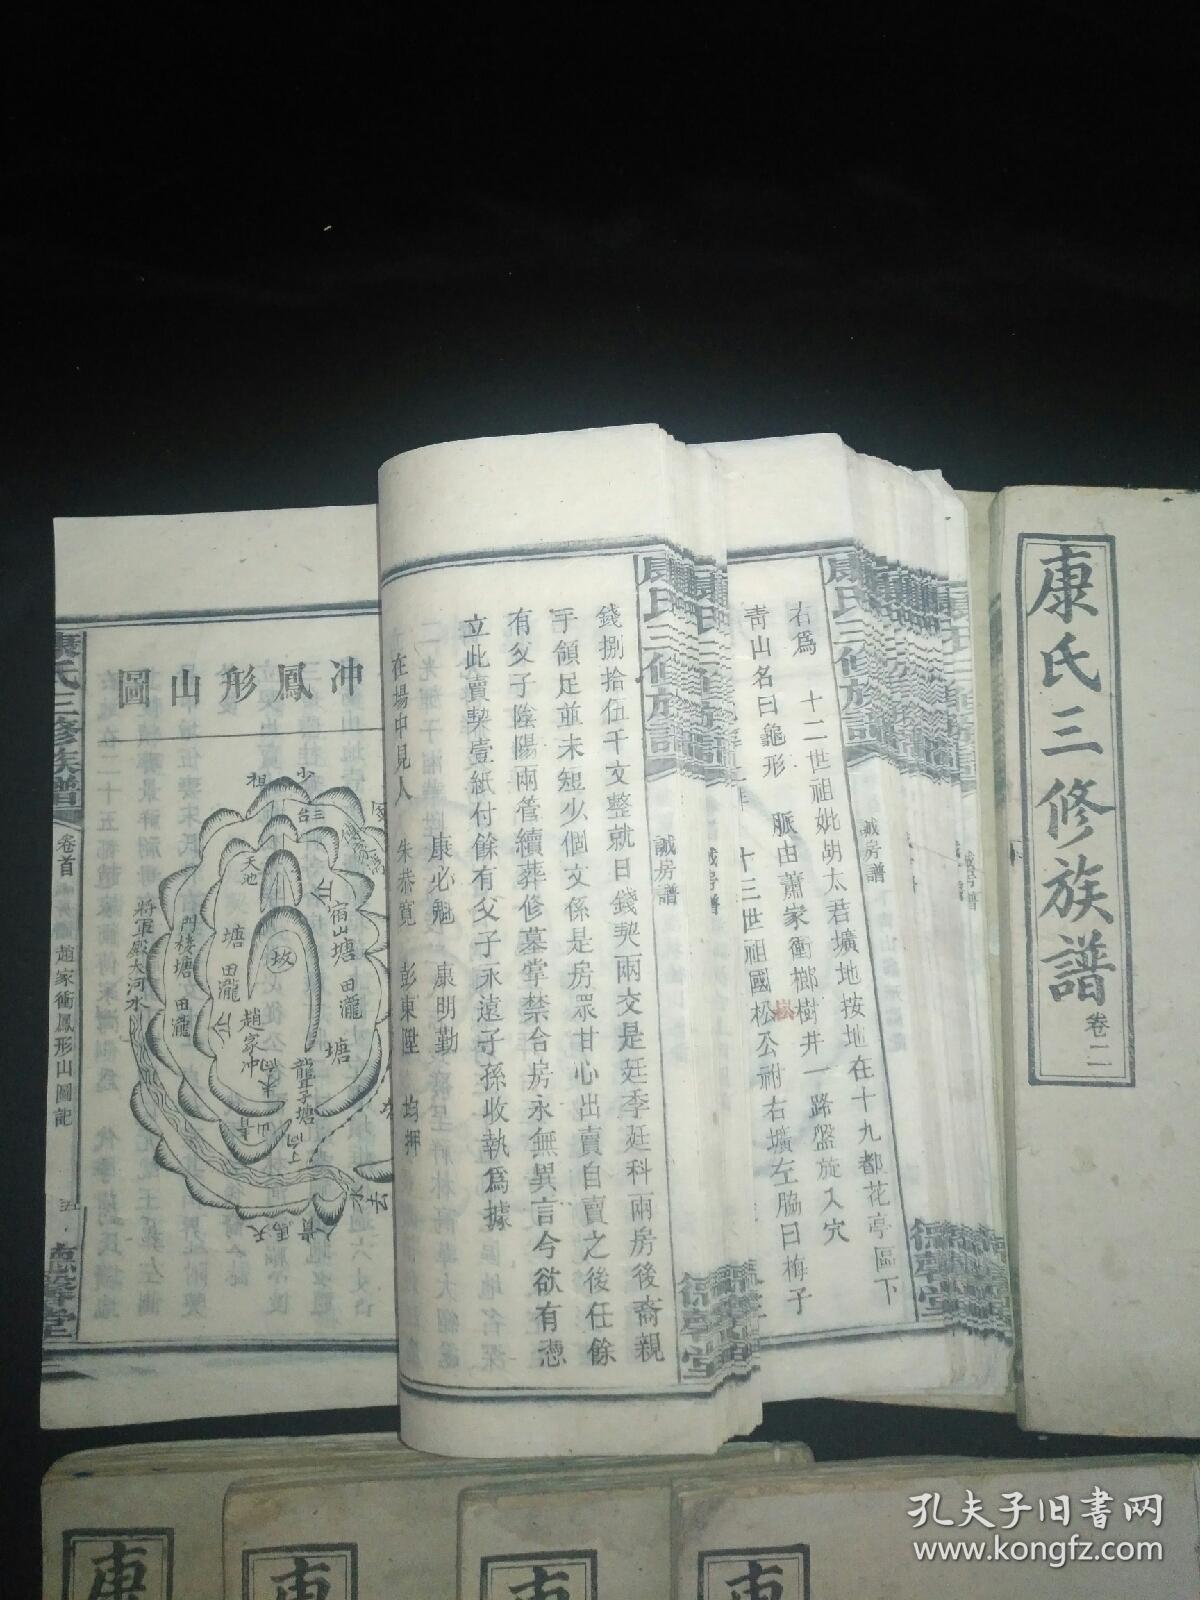 康氏三修族譜 卷二
康氏三修族譜
誠房譜
右為 十二世祖妣胡太君壙地按地在十九都花亭區下
青山名曰龜形 脈由蕭家衝榔樹井一路盤旋入穴
十三世祖國松公祔右壙左脇曰梅子
康氏三修族譜
誠房譜
錢捌拾伍千文整就日錢契兩交是廷季廷科兩房後裔親
手領足並未短少個文係是房眾甘心出賣自賣之後任餘
有父子陰陽兩管續葬修墓堂禁合房永無異言今欲有憑
立此賣契壹紙付餘有父子永遠子孫收執為據
康必魁 康明勤
在場中見人 朱恭寬 彭東陞 均押
冲鳳形山圖
少
祖
三台
天池
宿山塘
田瀧
塘
田瀧
門樓塘
田瀧
塘
坟
趙家冲
龍井子塘
將軍廟大河水
水
去
天馬
貴人
康氏三修族譜
卷首
趙家衝鳳形山圖記
五
康
康
康
康
孔夫子旧书网
www.kongfz.com